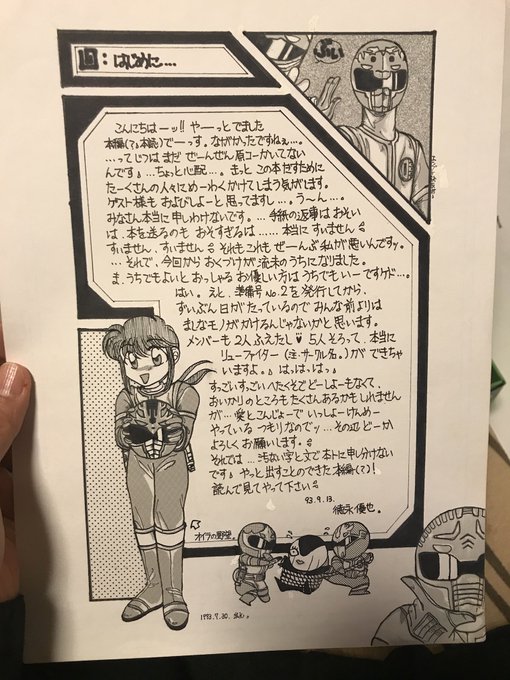 はじめに…
こんにちはーッ!! やーっとでました
本編(?)(本続)でーっす。ながかったですねぇ…。
…ってじつはまだ ぜーんぜん原コーかいてない
んです♪…ちょっと心配…。きっと この本だすために
たーくさんの人々にめーわくかけてしまう気がします。
ゲスト様も およびしよーと思ってますし…。う〜ん…。
みなさん本当に申しわけないです。…手紙の返事はおそい
は、本を送るのも おそすぎるは……本当に すいません
すいません、すいません それもこれも ぜーんぶ私が悪いんですッ。
…それで、今回から おくづけが 流未のうちになりました。
ま、うちでもよいと おっしゃる お優しい方は うちでもいーですケド…。
はい。えと、準備号No.2を発行してから、
ずいぶん日がたっているので みんな前よりは
ましなモノがかけるんじゃないかと思います。
メンバーも 2人ふえたし♥ 5人そろって、本当に
リューファイター(注・サークル名。)が できちゃ
いますよ。♪ はっはっはっ♪
すっごいすっごいへたくそでどーしよーもなくて、
おいかりのところもたくさんあるかもしれません
が…愛とこんじょーで いっしょーけんめー
やっている つもりなのでッ…その辺どーか
よろしくお願いします。
それでは…汚ない字と文で本トに申し分けない
です♪ やっと出すことのできた本編(?)!
読んで見てやって下さい
'93.9.13.
徳永優也。
オイラの野望。
1993.9.20.